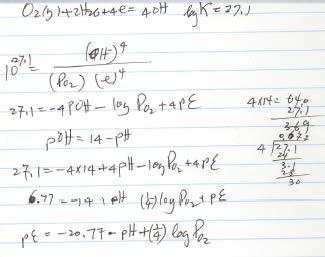 O2(g)+2H2O+4e = 4OH  log K = 27.1
10^27.1 = (OH)^4 / (PO2)(e)^4
27.1 = -4pOH - log PO2 + 4pE
pOH = 14 - pH
27.1 = -4×14 + 4pH - log PO2 + 4pE
6.77 = -14 + pH (1/4) log PO2 + pE
pE = -20.77 - pH + (1/4) log PO2
4×14 = 64.0
27.1
36.9
4 27.1
24
3.1
28
30